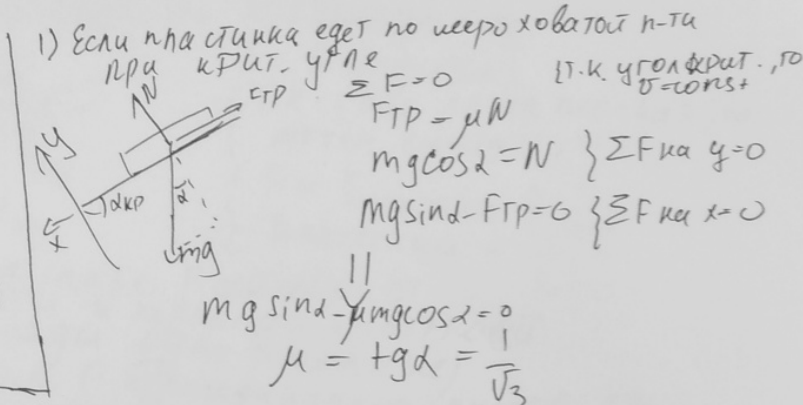 1) Если пластинка едет по шероховатой п-ти
при крит. угле
ΣF=0
{т.к. угол крит., то
v=const
Fтр = μN
mgcosα = N } ΣF на y=0
mgsinα-Fтр=0 { ΣF на x=0
N
Fтр
y
αкр
α
x
mg
mg sinα - μmgcosα = 0
μ = tgα = 1/√3